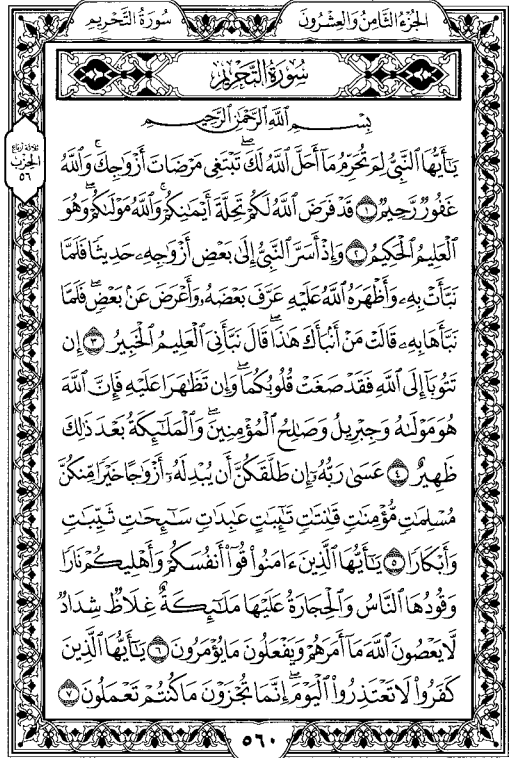 الجُزْءُ الثَّامِنُ وَالعِشْرُونَ
سُورَةُ التَّحْرِيم
سُورَةُ التَّحْرِيمِ
بِسْمِ ٱللَّهِ ٱلرَّحْمَٰنِ ٱلرَّحِيمِ
يَٰٓأَيُّهَا ٱلنَّبِيُّ لِمَ تُحَرِّمُ مَآ أَحَلَّ ٱللَّهُ لَكَۖ تَبْتَغِي مَرْضَاتَ أَزْوَٰجِكَۚ وَٱللَّهُ
غَفُورٞ رَّحِيمٞ ١ قَدْ فَرَضَ ٱللَّهُ لَكُمْ تَحِلَّةَ أَيْمَٰنِكُمْۚ وَٱللَّهُ مَوْلَىٰكُمْۖ وَهُوَ
ٱلْعَلِيمُ ٱلْحَكِيمُ ٢ وَإِذْ أَسَرَّ ٱلنَّبِيُّ إِلَىٰ بَعْضِ أَزْوَٰجِهِۦ حَدِيثٗا فَلَمَّا
نَبَّأَتْ بِهِۦ وَأَظْهَرَهُ ٱللَّهُ عَلَيْهِ عَرَّفَ بَعْضَهُۥ وَأَعْرَضَ عَنۢ بَعْضٖۖ فَلَمَّا
نَبَّأَهَا بِهِۦ قَالَتْ مَنْ أَنۢبَأَكَ هَٰذَاۖ قَالَ نَبَّأَنِيَ ٱلْعَلِيمُ ٱلْخَبِيرُ ٣ إِن
تَتُوبَآ إِلَى ٱللَّهِ فَقَدْ صَغَتْ قُلُوبُكُمَاۖ وَإِن تَظَٰهَرَا عَلَيْهِ فَإِنَّ ٱللَّهَ
هُوَ مَوْلَىٰهُ وَجِبْرِيلُ وَصَٰلِحُ ٱلْمُؤْمِنِينَۖ وَٱلْمَلَٰٓئِكَةُ بَعْدَ ذَٰلِكَ
ظَهِيرٌ ٤ عَسَىٰ رَبُّهُۥٓ إِن طَلَّقَكُنَّ أَن يُبْدِلَهُۥٓ أَزْوَٰجًا خَيْرٗا مِّنكُنَّ
مُسْلِمَٰتٖ مُّؤْمِنَٰتٖ قَٰنِتَٰتٖ تَٰٓئِبَٰتٍ عَٰبِدَٰتٖ سَٰٓئِحَٰتٖ ثَيِّبَٰتٖ
وَأَبْكَارٗا ٥ يَٰٓأَيُّهَا ٱلَّذِينَ ءَامَنُواْ قُوٓاْ أَنفُسَكُمْ وَأَهْلِيكُمْ نَارٗا
وَقُودُهَا ٱلنَّاسُ وَٱلْحِجَارَةُ عَلَيْهَا مَلَٰٓئِكَةٌ غِلَاظٞ شِدَادٞ
لَّا يَعْصُونَ ٱللَّهَ مَآ أَمَرَهُمْ وَيَفْعَلُونَ مَا يُؤْمَرُونَ ٦ يَٰٓأَيُّهَا ٱلَّذِينَ
كَفَرُواْ لَا تَعْتَذِرُواْ ٱلْيَوْمَۖ إِنَّمَا تُجْزَوْنَ مَا كُنتُمْ تَعْمَلُونَ ٧
ثلاثة أرباع
الحزب
٥٦
٥٦٠